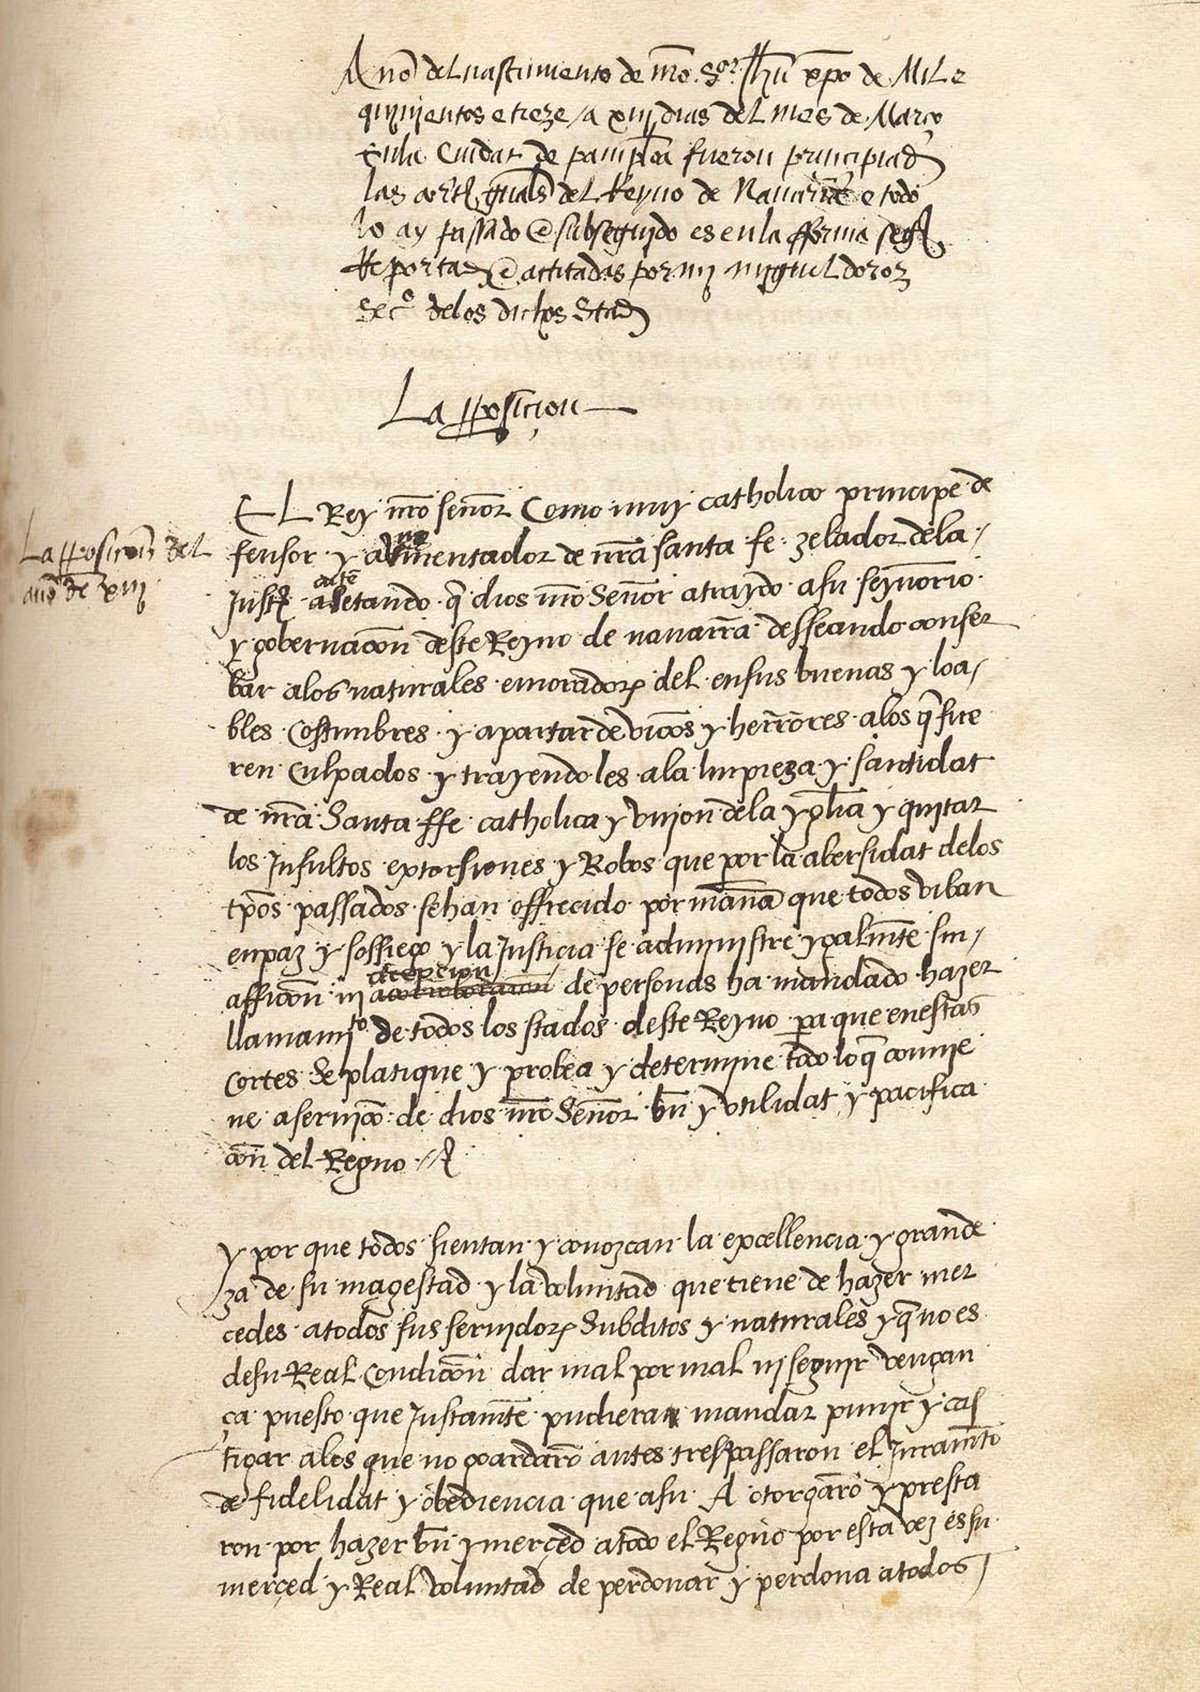 Año del nascimiento de nr̄o Sor Jhū xp̄o de Mil e
quinientos e treze / a xiij dias del mes de Março
en la Ciudat de pamplona fueron principiad
las cort gn̄ales del Reyno de Navarra e todo
lo ay passado e subseguido es en la fforma seg
Reportad e actitadas por mi miguel doroz
Secº de los dichos Stad
La pposiçion
EL Rey nr̄o señor Como muy catholico principe de
La pposicion del
fensor y augmentador de nr̄a santa fe zelador de la
año de xiij
Just acatando q̄ dios nr̄o Señor a traydo a su seynorio
y gobernacōn deste Reyno de navarra desseando conser
bar a los naturales e morador del en sus buenas y loa
bles costumbres y apartar de vicios y herrores a los q̄ fue
ren culpados y trayendo les a la limpieza y santidat
de nr̄a Santa ffe catholica y vnion de la ygl̄ia y quitar
los Insultos extorsiones y Robos que por la abersidat de los
tp̄os passados se han offrecido por man̄a que todos viban
en paz y sossiego y la Justicia se administre ygalmēte sin
afficōn ni acepcion de personas ha mandado hazer
llamamjto de todos los stados deste Reyno pa que en estas
Cortes se platique y probea y determine todo lo q̄ conuie
ne a seruicō de dios nr̄o Señor bn̄ y vtilidat y pacifica
cōn del Regno
Y por que todos sientan y conozcan la excellencia y grande
za de su magestad y la voluntad que tiene de hazer mer
cedes a todos sus seruidor Subditos y naturales y q̄ no es
de su Real Condicōn dar mal por mal ni seguir vengan
ça puesto que Justamēte pudiera mandar punir y cas
tigar a los que no goardarō antes trespassaron el Juramēto
de fidelidat y obediencia que a su A otorgarō y presta
ron por hazer bn̄ y merçed a todo el Regno por esta vez es su
merçed y Real voluntad de perdonar y perdona a todos